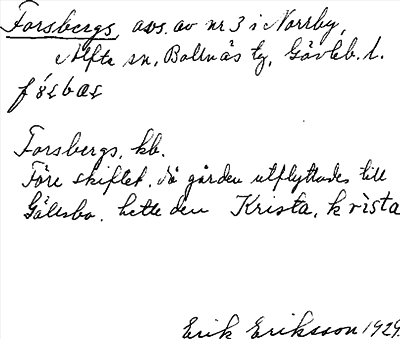 Forsbergs, avs. av nr 3 i Norrby,
Alfta sn, Bollnäs tg, Gävleb. l.
Forsbergs, kb.
Före skiftet, då gården utflyttades till
Gällsbo, hette den Krista, krista
Erik Eriksson 1929.